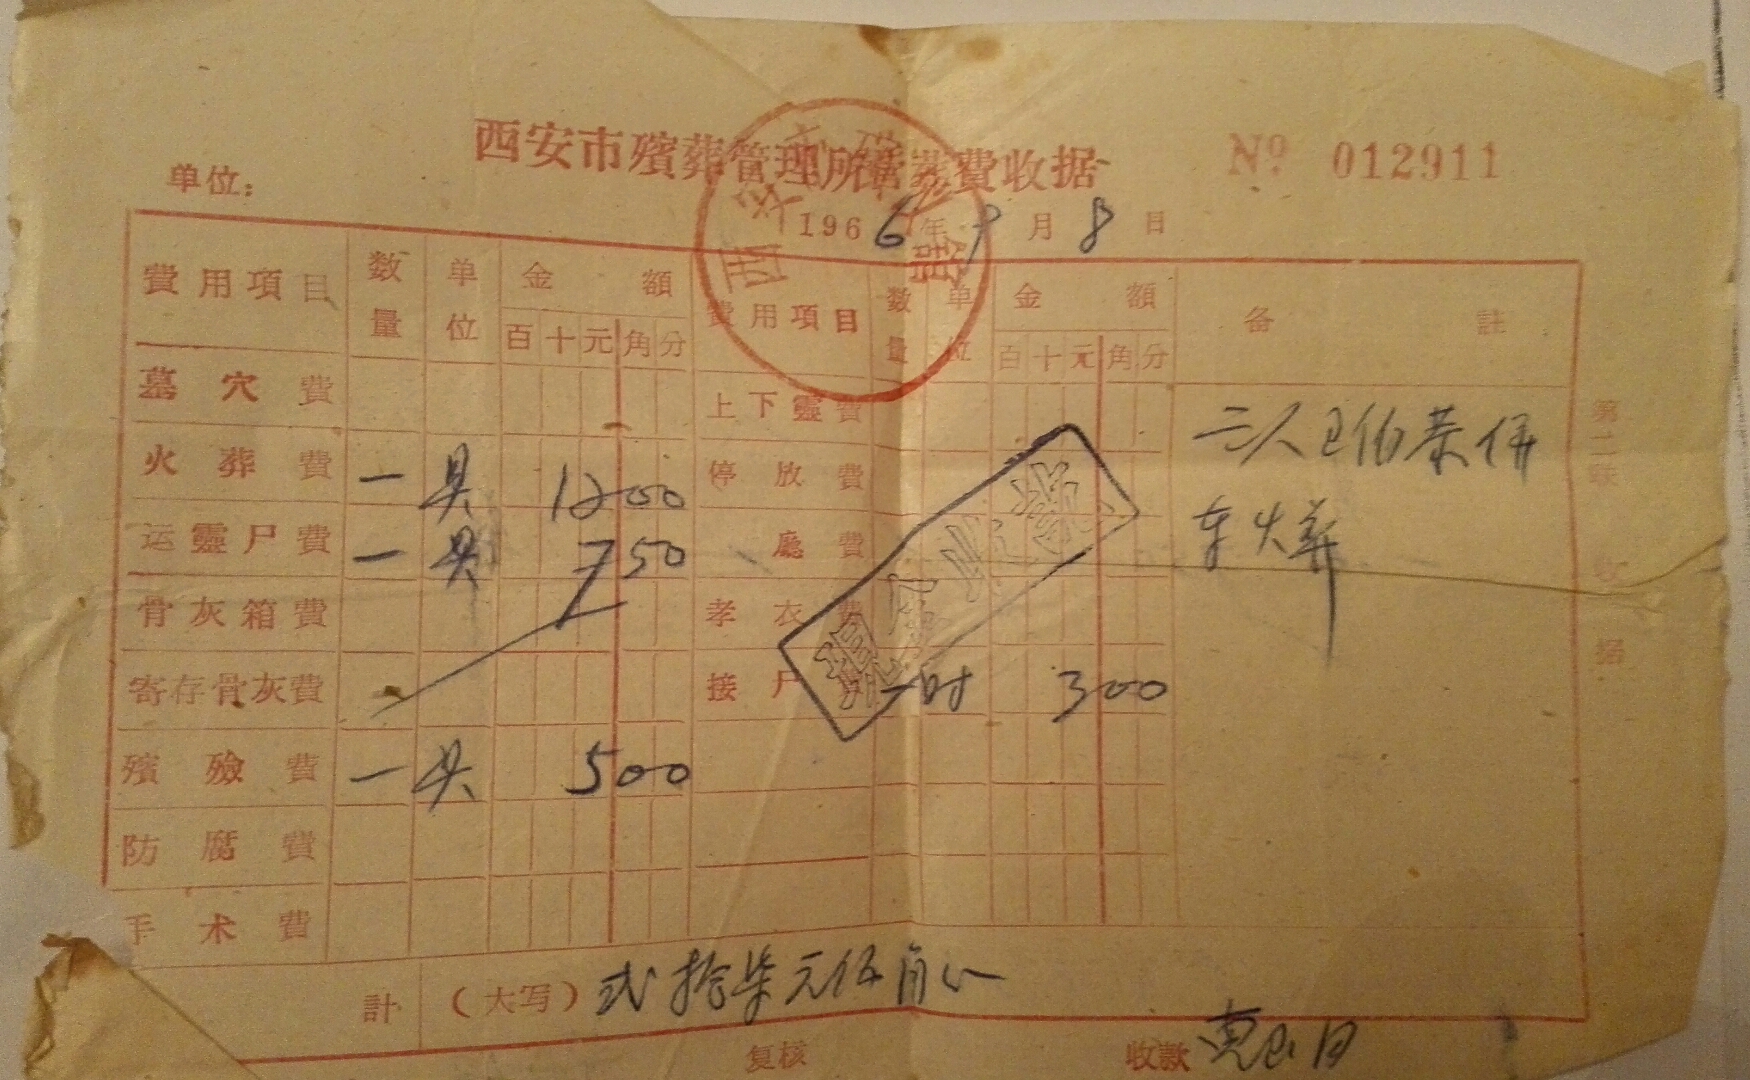 西安市殯葬管理所殯葬費收据
№ 012911
单位:
1966年9月8日
費用項目 数量 单位 金額 百十元角分 費用項目 数量 单位 金額 百十元角分 备註
墓穴費 上下靈費
火葬費 一 具 1200 停放費
运靈尸費 一 具 750 廳費
骨灰箱費 孝衣費
寄存骨灰費 接尸 一时 300
殯殮費 一 具 500
防腐費
手术費
二人
车火葬
現金收訖
計 (大写) 弍拾柒元伍角
复核 收款
第二联 收据
西安市殯葬